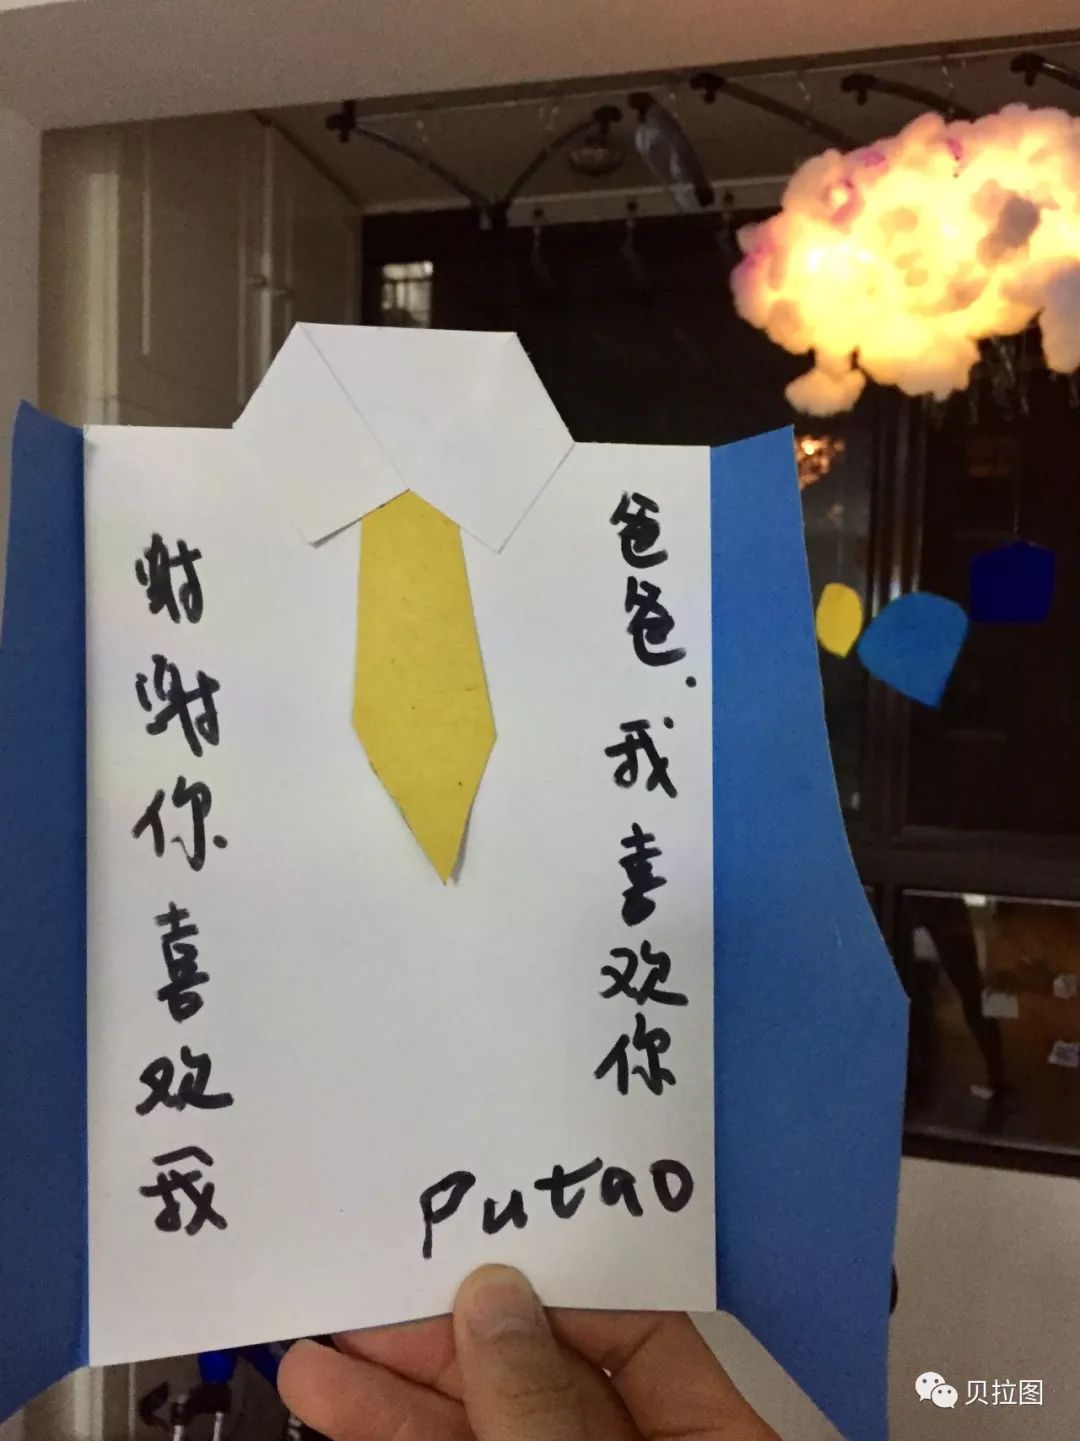 爸爸.我喜欢你
谢谢你喜欢我
Putao
贝拉图